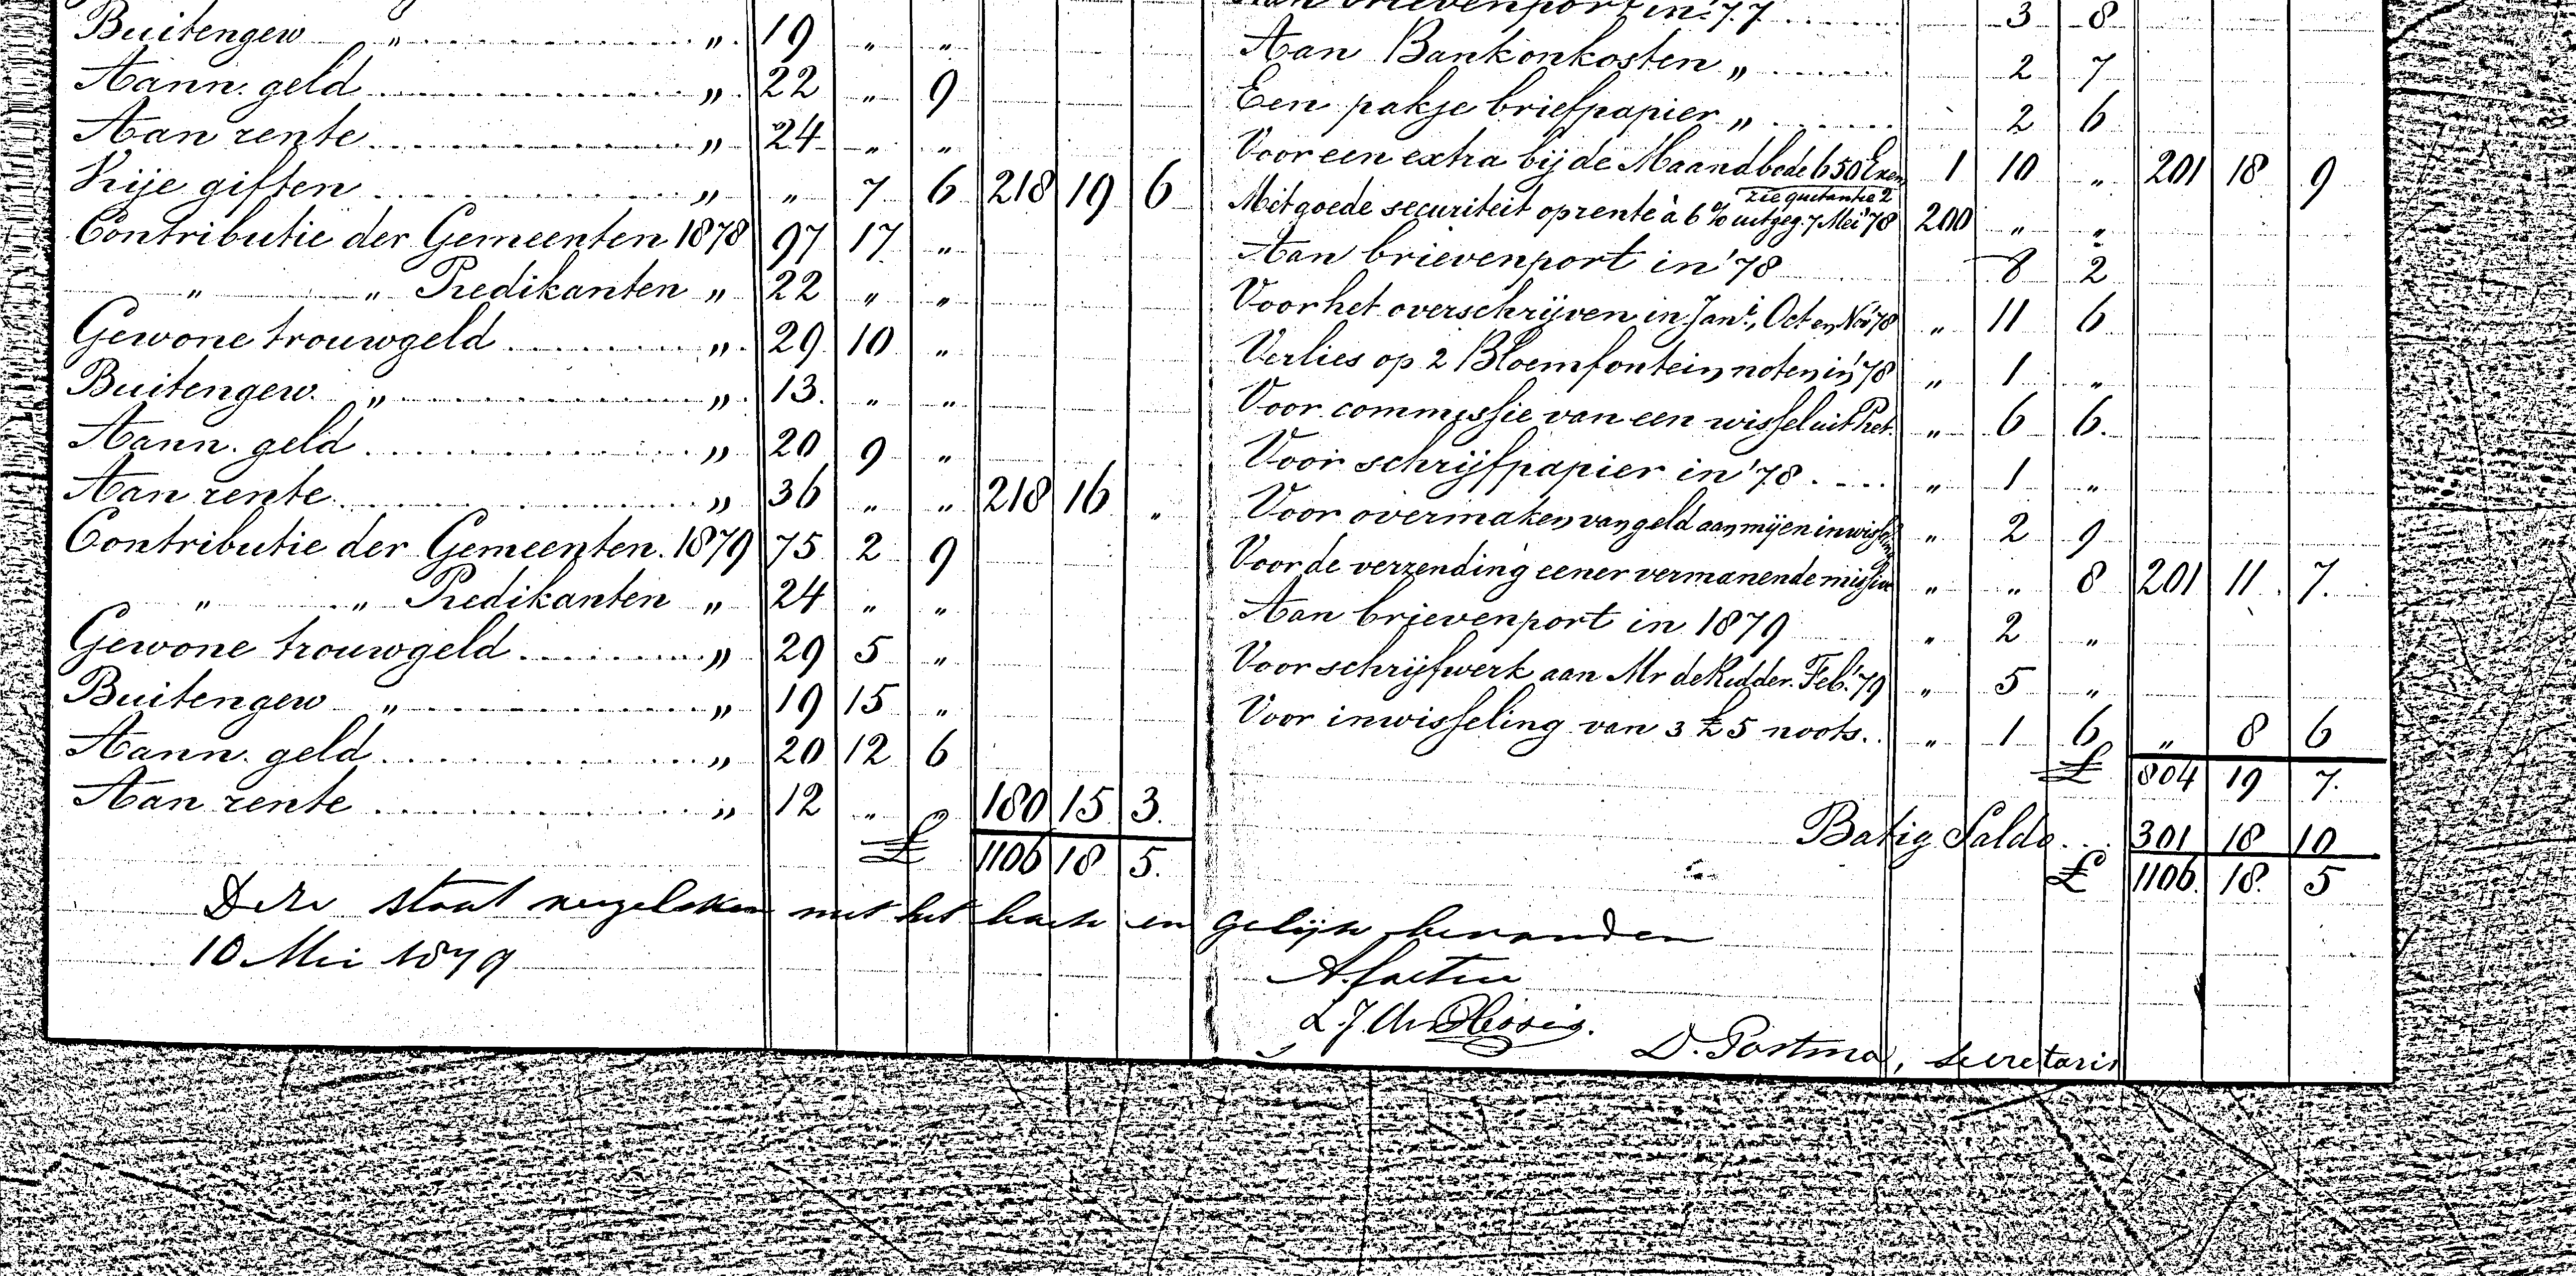 Buitengew „ „ 19 „ „
Aann. geld „ 22 „ 9
Aan rente „ 24 „ „
Vrije giften „ „ 7 6 218 19 6
Contributie der Gemeenten 1878 97 17 „
„ „ Predikanten „ 22 „ „
Gewone trouwgeld „ 29 10 „
Buitengew. „ „ 13 „ „
Aann. geld „ 20 9 „
Aan rente „ 36 „ „ 218 16 „
Contributie der Gemeenten. 1879 75 2 9
„ „ Predikanten „ 24 „ „
Gewone trouwgeld „ 29 5 „
Buitengew „ „ 19 15 „
Aann. geld „ 20 12 6
Aan rente „ 12 „ 180 15 3.
£ 1106 18 5.
Aan brievenport in '77 3 8
Aan Bankonkosten „ 2 7
Een pakje briefpapier „ 2 6
Voor een extra bij de Maandbode 650 Exem 1 10 „ 201 18 9
zie quitantie 2
Met goede securiteit op rente à 6 % uitgeg. 7 Mei '78 200 „ „
Aan brievenport in '78 8 2
Voor het overschrijven in Jan., Oct en Nov '78 „ 11 6
Verlies op 2 Bloemfontein noten in '78 „ 1 „
Voor commissie van een wissel uit Pret. „ 6 6.
Voor schrijfpapier in '78 „ 1 „
Voor overmaken van geld aan mij en „ 2 9
Voor de verzending eener vermanende missive „ „ 8 201 11 7.
Aan brievenport in 1879 „ 2 „
Voor schrijfwerk aan Mr de Ridder. Feb. '79 „ 5 „
Voor inwisseling van 3 £ 5 noots. „ 1 6 „ 8 6
£ 804 19 7.
Batig Saldo 301 18 10
£ 1106. 18. 5
Deze staat vergeleken met het boek en gelijk bevonden
10 Mei 1879
L. J. du Plessis.
D. Postma, secretaris